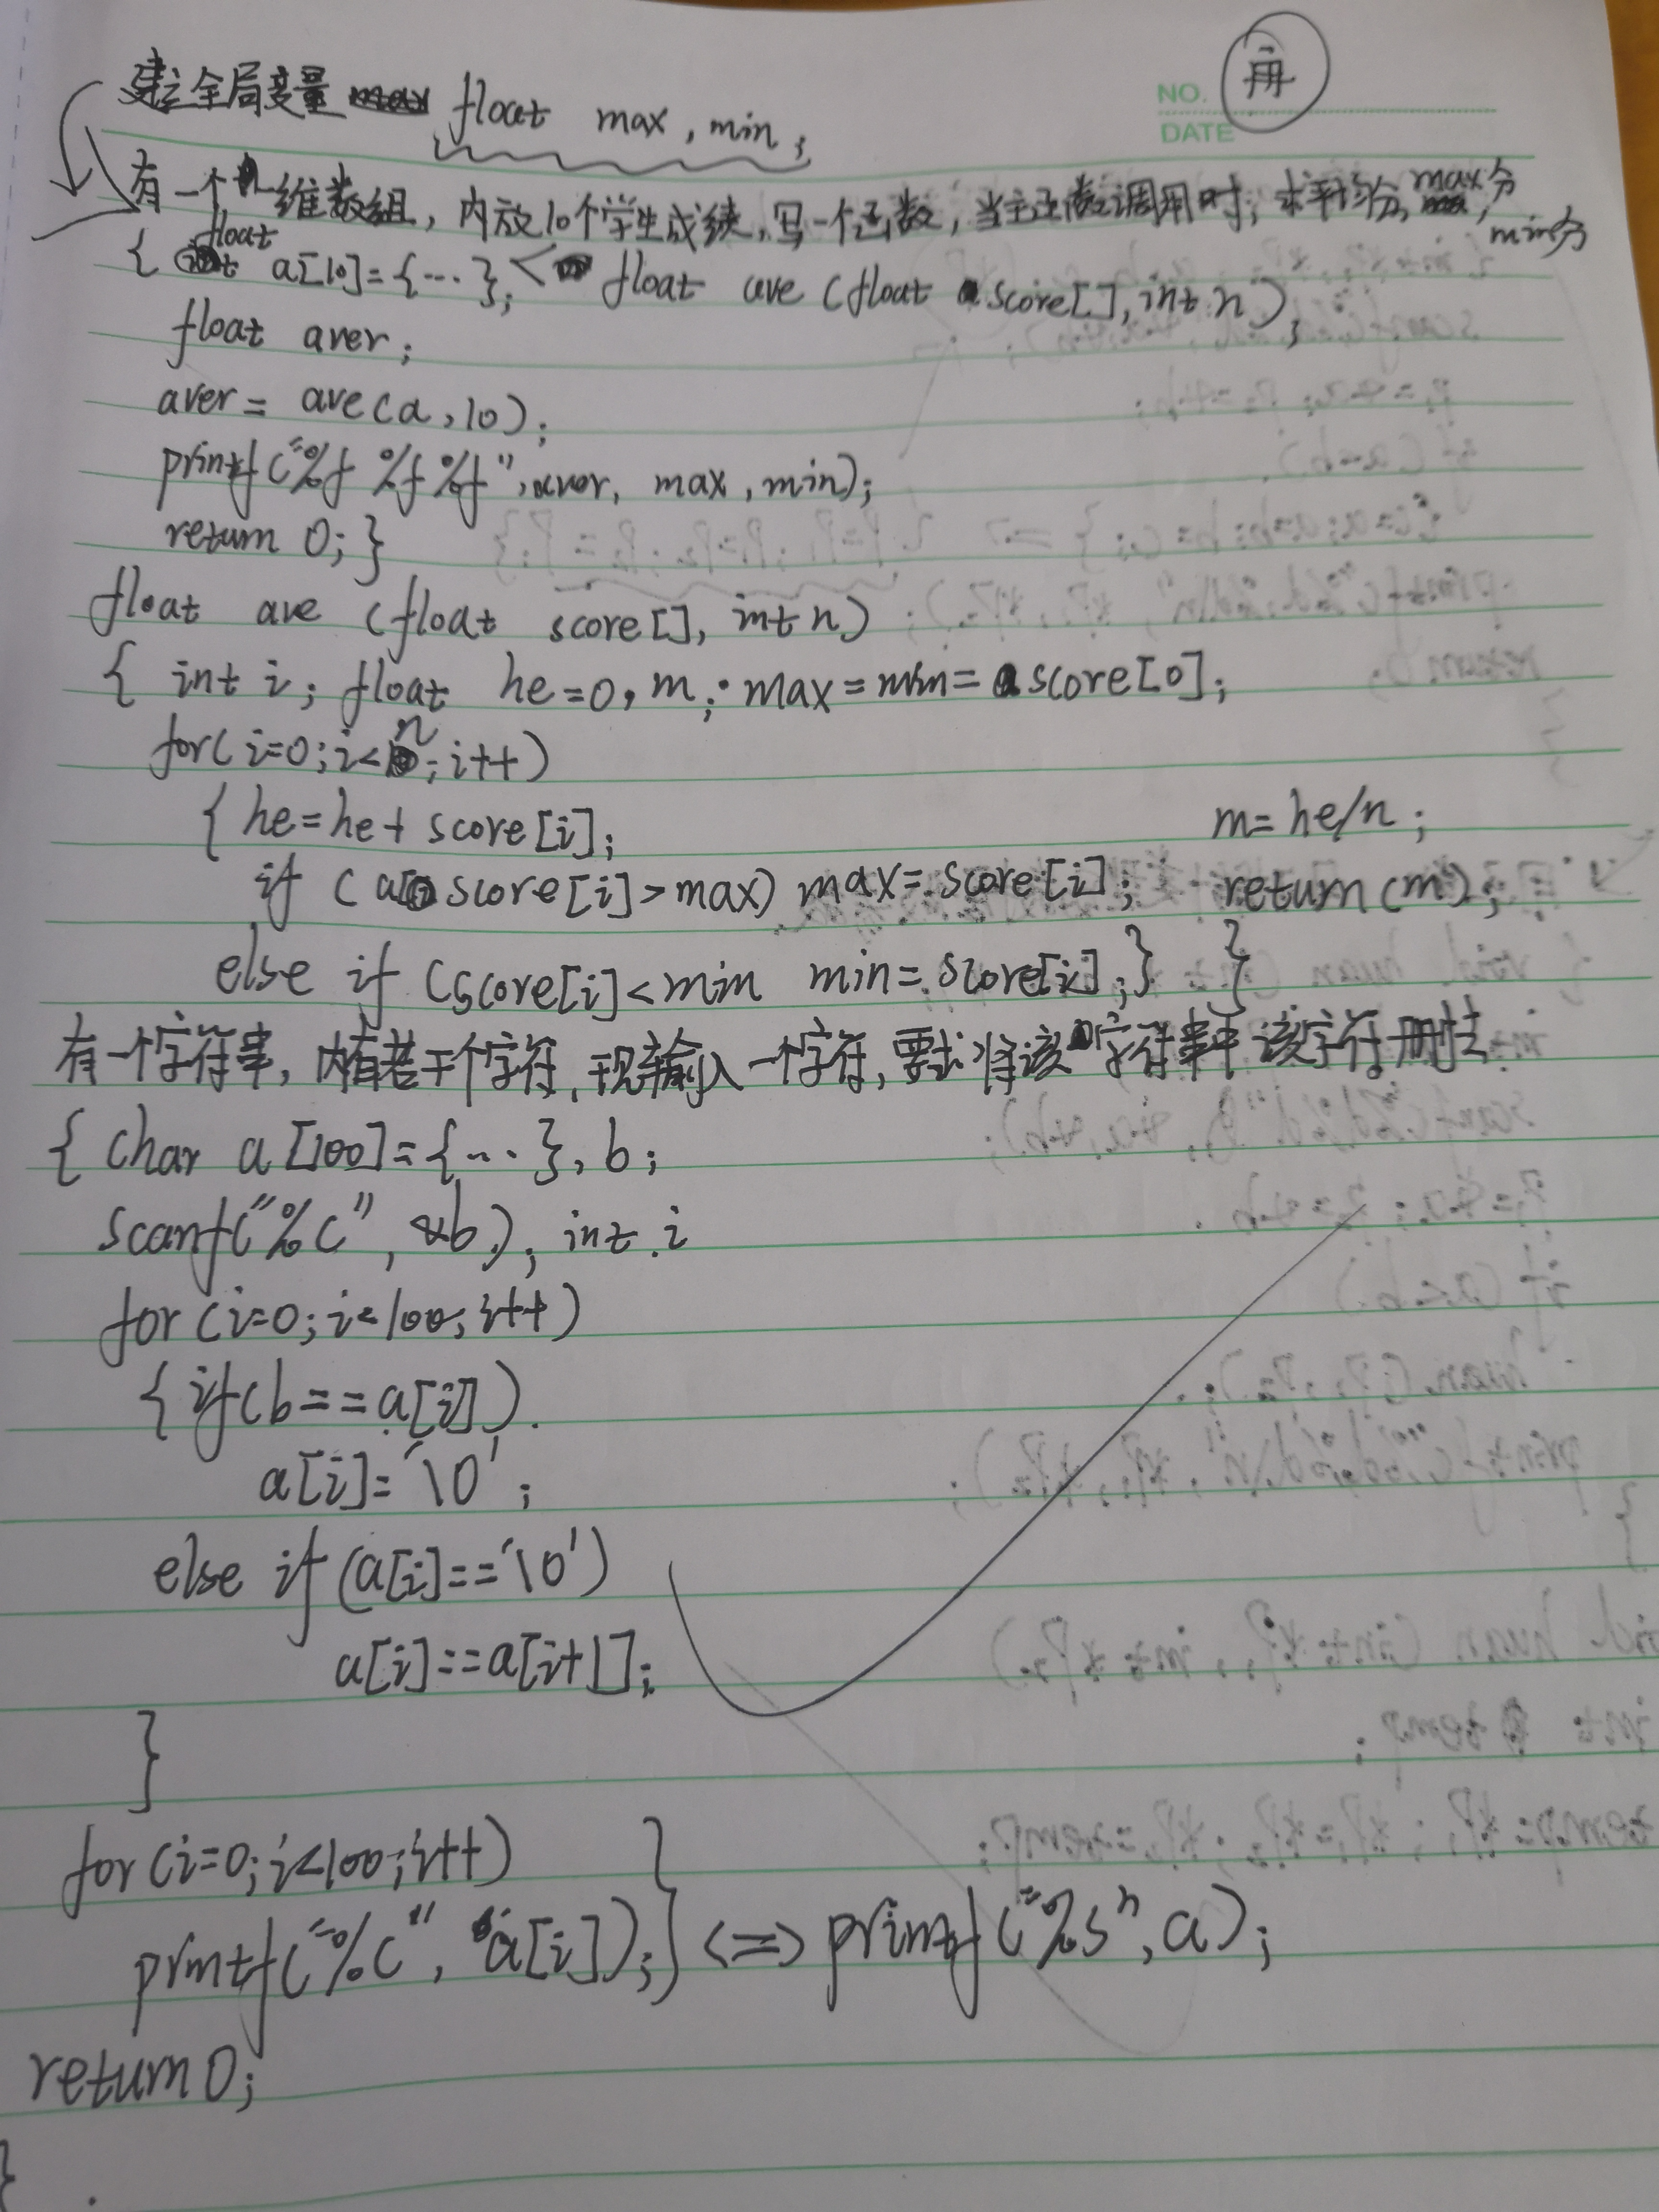 NO. 再
DATE
建立全局变量 float max, min;
有一个一维数组, 内放10个学生成绩, 写一个函数, 当主函数调用时, 求平均分, max分, min分
{ float a[10]={…}; < float ave (float score[], int n);
float aver;
aver = ave(a, 10);
printf("%f %f %f", aver, max, min);
return 0; }
float ave (float score[], int n)
{ int i; float he=0, m; max=min=score[0];
for(i=0; i<n; i++)
{ he=he+score[i]; m=he/n;
if (score[i]>max) max=score[i]; return(m);
else if (score[i]<min min=score[i];} }
有一个字符串, 内有若干个字符, 现输入一个字符, 要求将该字符串中该字符删去.
{ char a[100]={…}, b;
scanf("%c", &b); int i
for (i=0; i<100; i++)
{ if(b==a[i])
a[i]='\0';
else if (a[i]=='\0')
a[i]==a[i+1];
}
for(i=0; i<100; i++)
printf("%c", a[i]);} <=> printf("%s", a);
return 0;
}